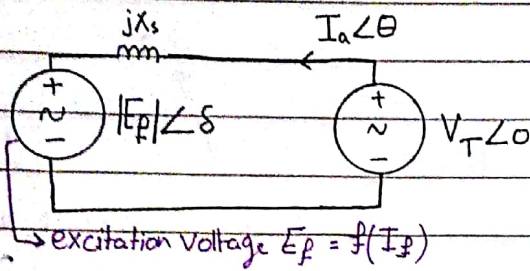 jXs
Ia∠θ
+
~
−
|Ef|∠δ
+
~
−
VT∠0
excitation voltage Ef = f(If)